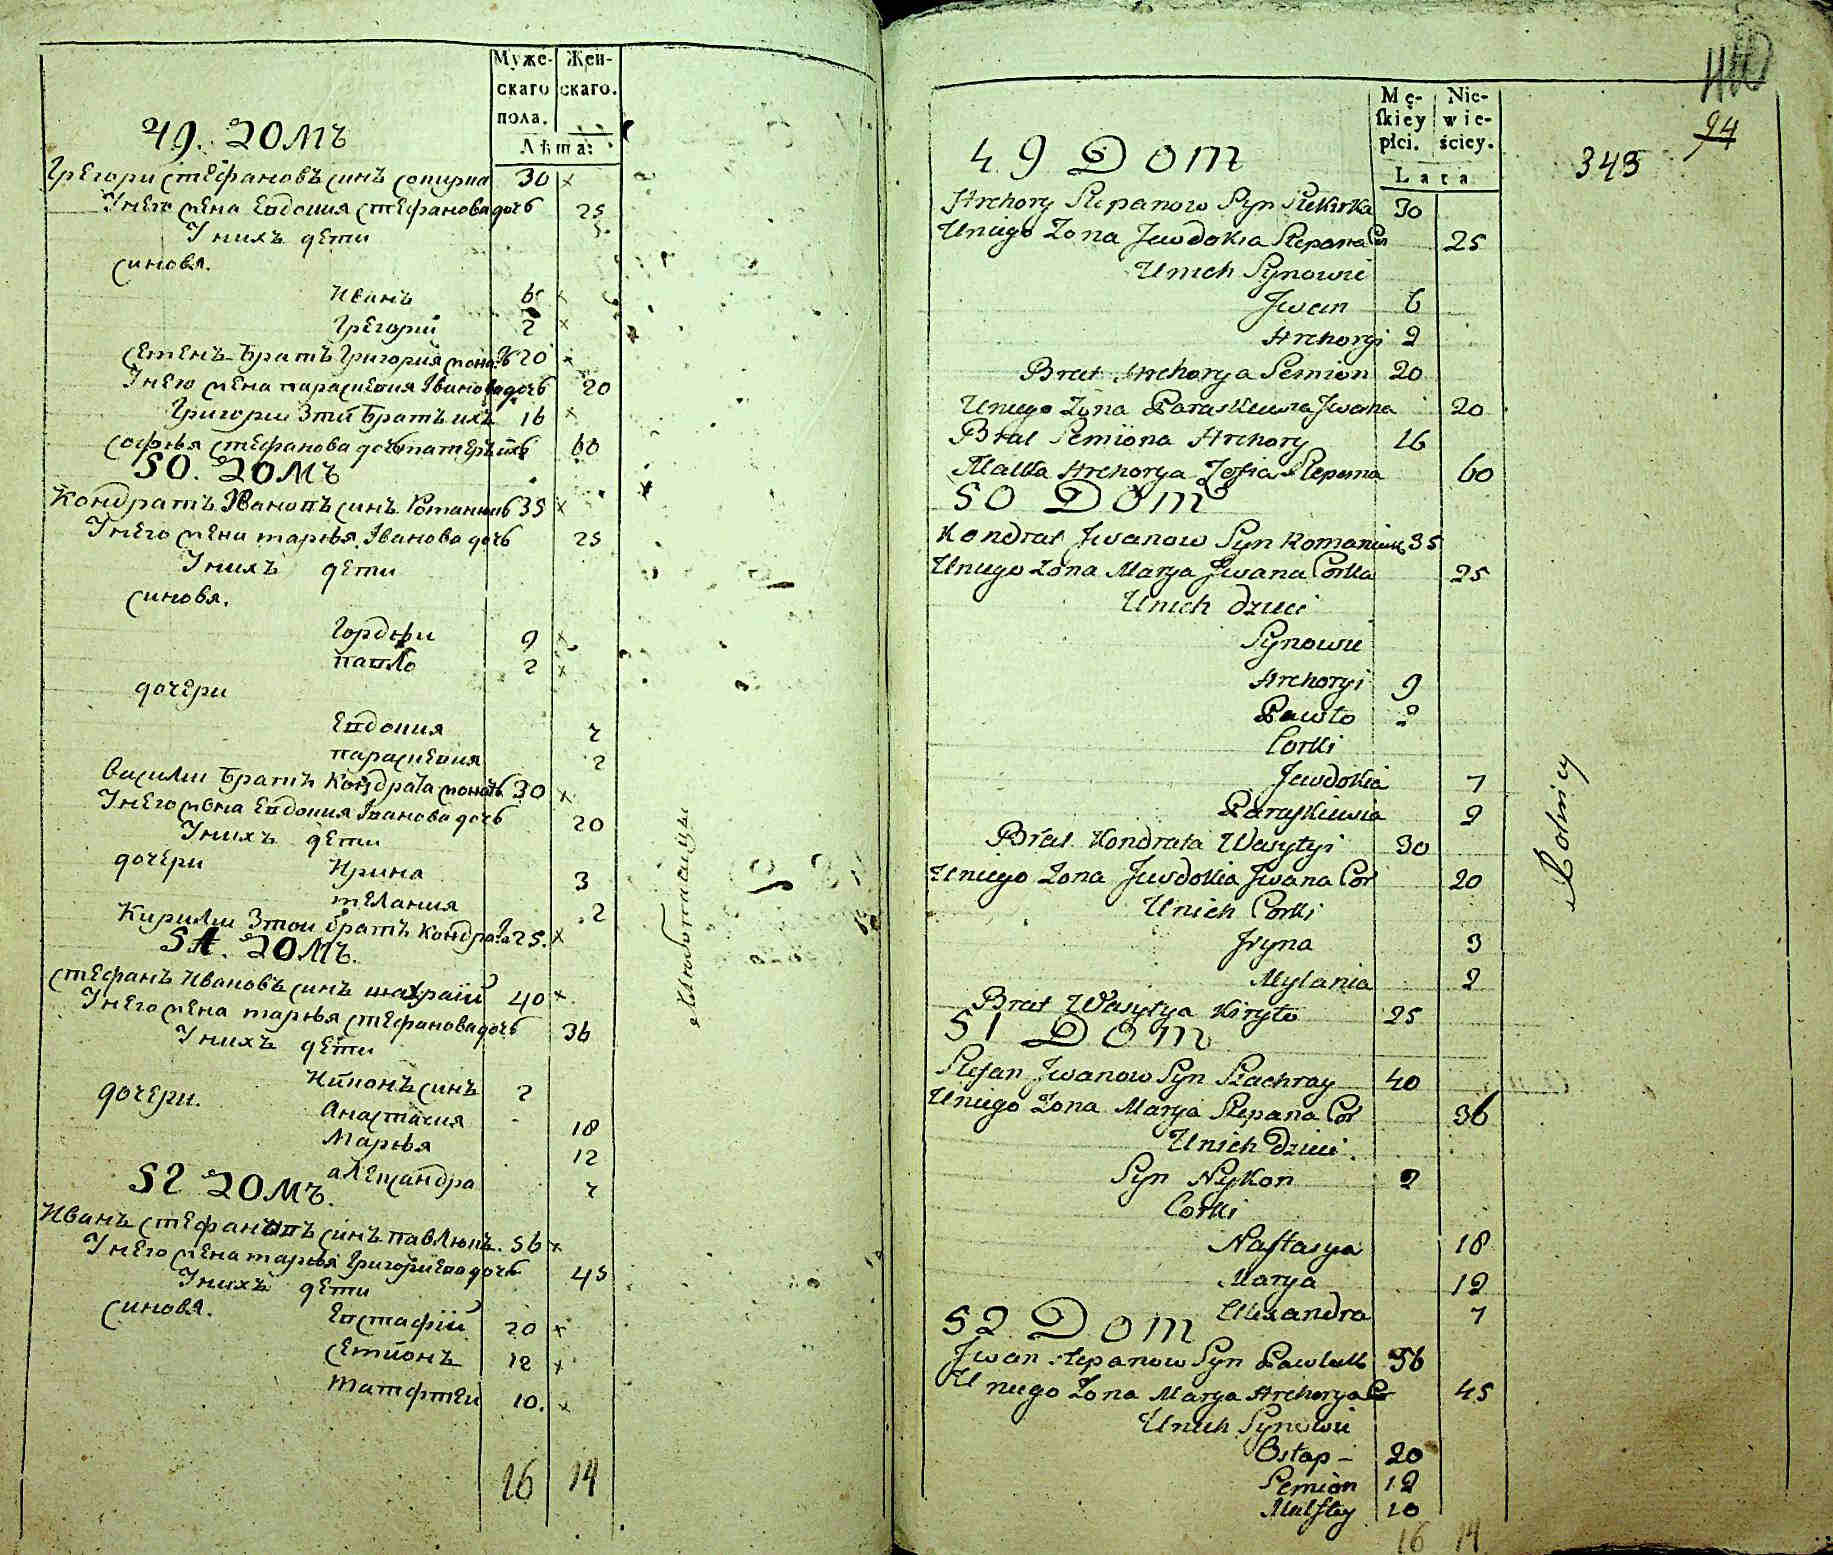 Муже-
скаго
пола.
Жен-
скаго.
Лѣта:
49. домъ
Грегори стефановъ синъ 30
У него жена Евдокия стефанова дочь 25
У нихъ дети
синовя.
Иванъ 6
Грегорий 2
Семенъ братъ Григория 20
У него жена параскевия Іванова дочь 20
Григории 3тий братъ ихъ 16
софья стефанова дочь матерь ихъ 60
50. домъ
Кондратъ Ивановъ синъ Романюкъ 35
У него жена марья Іванова дочь 25
У нихъ дети
синовя.
Гордѣи 9
павло 2
дочери
Евдокия 7
параскевия 2
василии братъ Кондрата 30
У него жена Евдокия Іванова дочь 20
У нихъ дети
дочери Ирина 3
мелания 2
Кирилии 3тои братъ Кондрата 25.
51. домъ.
стефанъ Ивановъ синъ шахрай 40
У него жена марья стефанова дочь 36
У нихъ дети
Никонъ синъ 2
дочери. Анастасия 18
Марья 12
александра 7
52 домъ.
Иванъ стефановъ синъ павлюкъ. 56
У него жена марья Григориева дочь 45
У нихъ дети
синовя. Евстафій 20
семионъ 12
матфтеи 10.
16 14
Хлѣбопашцы
94
Mę-
skiey
płci.
Nie-
wie-
ściey.
Lata
343
49 Dom
Hrehory Stepanow Syn 30
Uniego Zona Jewdokia Stepana Cor 25
Unich Synowie
Jwan 6
Hrehoryi 2
Brat Hrehorya Semion 20
Uniego Zona Paraskiewia Jwana 20
Brat Semiona Hrehory 16
Matka Hrehorya Zofia Stepana 60
50 Dom
Kondrat Jwanow Syn Romaniuk 35
Uniego Zona Marya Jwana Corka 25
Unich dzieci
Synowie
Hrehoryi 9
Pawło 2
Corki
Jewdokia 7
Paraskiewia 2
Brat Kondrata Wasylyi 30
Uniego Zona Jewdokia Jwana Cor 20
Unich Corki
Jryna 3
Mylania 2
Brat Wasylya Kiryło 25
51 Dom
Stefan Jwanow Syn Szachray 40
Uniego Zona Marya Stepana Cor 36
Unich Dzieci
Syn Nykon 2
Corki
Nastasya 18
Marya 12
Alexandra 7
52 Dom
Jwan Stepanow Syn Pawluk 56
Uniego Zona Marya Hrehorya Cor 45
Unich Synowie
Ostap - 20
Semion 12
Matftey 10
16 14
Rolnicy